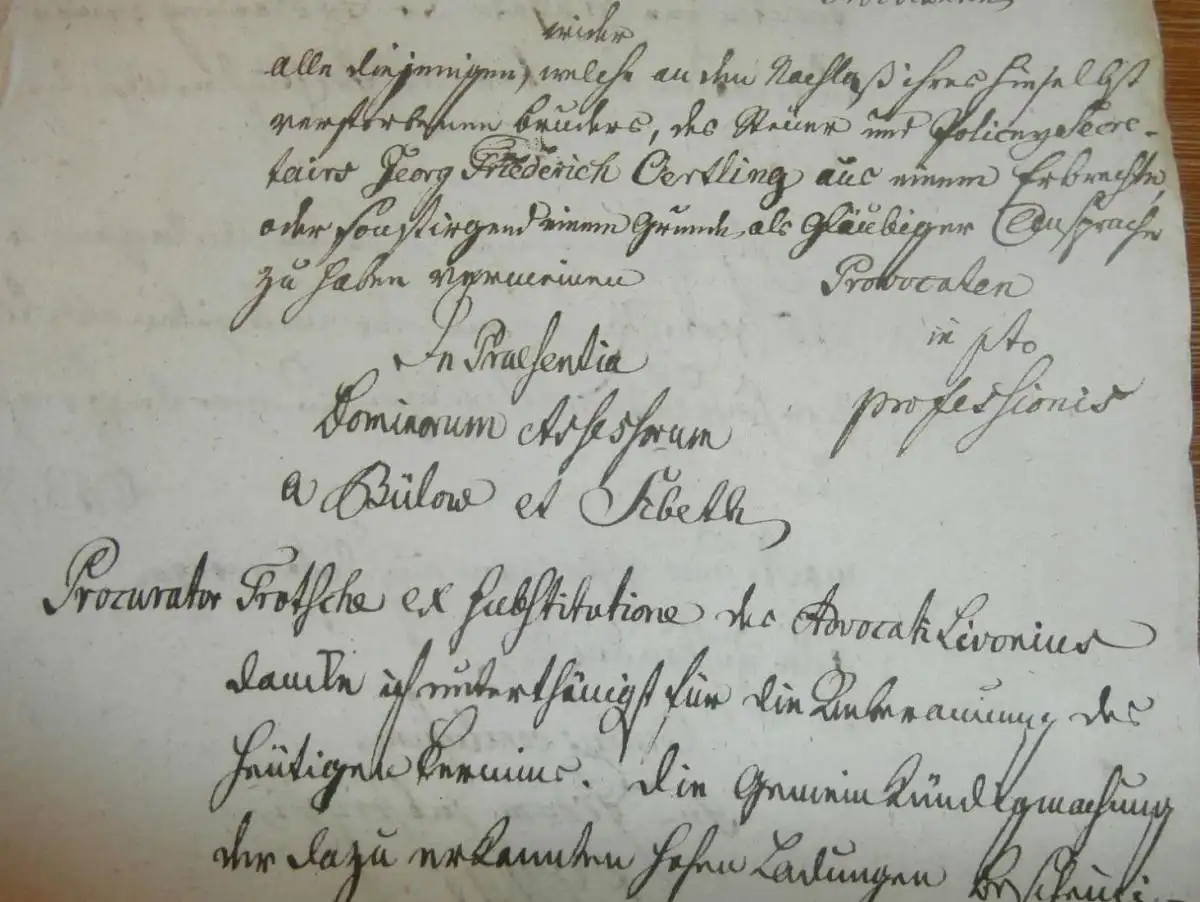 wider
alle diejenigen, welche an den Nachlaß ihres hieselbst
verstorbenen bruders, des Steuer und Policey Secre-
tairs Georg Friederich Oertling aus einem Erbrechte,
oder sonst irgend einem Grunde, als Gläubiger Ansprache
zu haben vermeinen Provocaten
in pto
professionis
In Praesentia
Dominorum Assessorum
a Bülow et Sibeth
Procurator Trotsche ex substitutione des Advocati Livonius
danke ich unterthänigst für die Anberaumung des
heütigen Termins. Die Gemeinkündigmachung
der dazu erkannten hohen Ladungen bescheini-